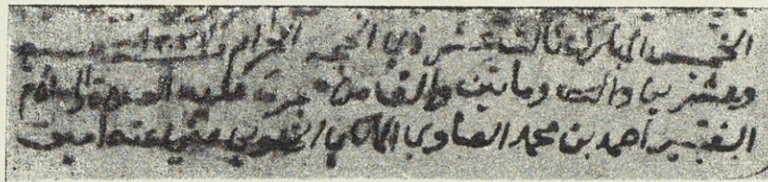 الخميس المبارك ثالث عشر ذي الحجة الحرام سنة
وعشرين والف ومايتين والف من هجرته عليه الصلاة والسلام
الفقير أحمد بن محمد الصاوي المالكي الخلوتي عفي عنه امين